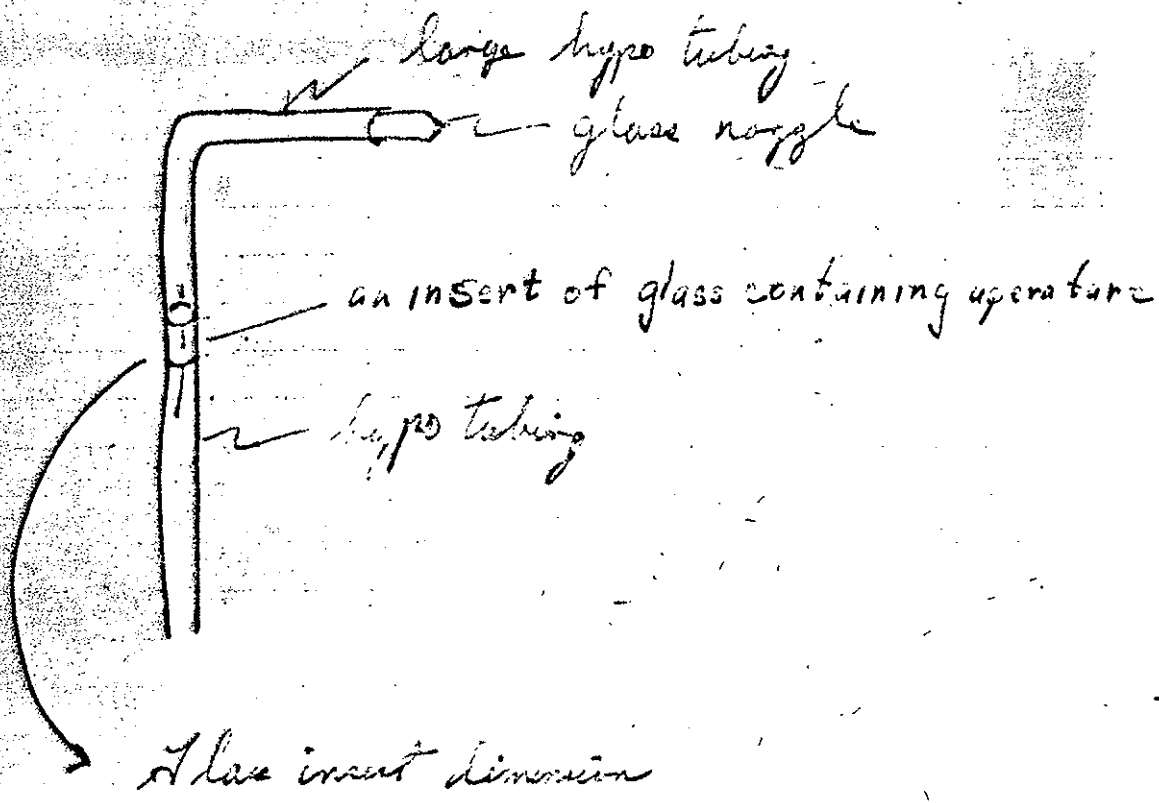 large hypo tubing
glass nozzle
an insert of glass containing aperature
hypo tubing
Glass insert dimension